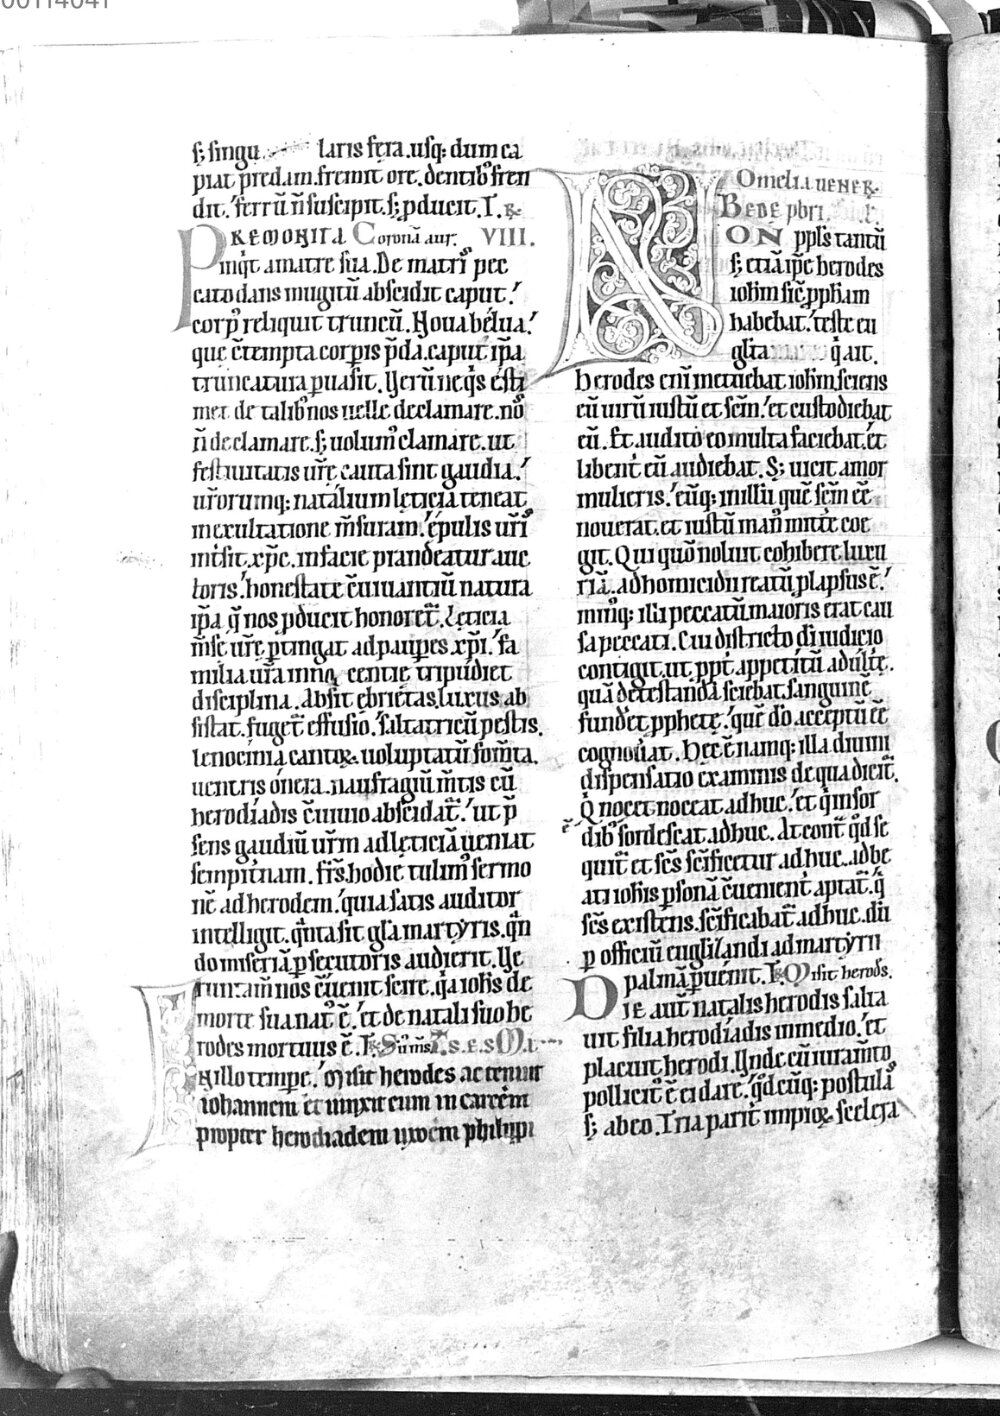 00114041
s; singu laris fera.usq: dum ca
piat predam.fremit ore.dentib᷒ fren
dit.'ferrū n̄ suscipit.s; pducit.T.℞
PREMONITA Coronā aur. VIII.
inq̇t a matre sua.De matrı᷒ pec
cato dans mugitū abscidit caput.'
corp᷒ reliquit truncū. Noua bélua.'
que ōtempta corpis p̄da.caput ip̄a
truncatura puasit.Verū neq̇s ęsti
met de talib᷒ nos uelle declamare.nō
n̄ declamare.s; uolum᷒ clamare.ut
festiuitatis ur̄e.cauta sint gaudia.'
ur̄orumq: natálium lęticia teneat
in exultatione m̄suram.'ępulis urı᷒
mı̄sit.xp̄c.in facie prandeatur auc
toris.'honestate c̄uiuantiū natura
ip̄a q̄ nos pducit honoret᷑.Lęticia
m̄sę ur̄ę ptingat ad paupes.xp̄i.'fa
milia ur̄a innocentię tripúdiet
disciplina.Absit ebrietas.luxus ab
sistat.fuget᷑ effusio.'saltatricū pestis.
lenocinia cantuꝝ.uoluptatū fom̄ta.
uentris ónera.naufragiū m̄tis cū
herodíadis c̄uiuio abscidat᷑.'ut p̄
sens gaudiū ur̄m ad lęticiā ueniat
sempit̄nam. fr̄s.hodie tulim᷒ sermo
nē ad herodem.'quia satis auditor
intelligit.q̄nta sit gl̄a martyris.q̄n
do miseriā psecutoris audierit.Ve
runtam̄ nos c̄uenit scire.q̇a ioh̄is de
morte sua nat᷒ ē.'et de natali suo he
rodes mortuus ē.T.℞
INillo tempe.'Misit herodes ac tenuit
iohannem et uinxit eum in carcēm
propter herodiadem uxorem philippi
Omelia uener.
BEDE pbri. I.
NON pp̄ls tantū
s; etiā ip̄e herodes
ioh̄m sic̄.pphām
habebat.'teste eu
gl̄ia q̇ ait.
Herodes eni᷒ metuebat ioh̄m.sciens
eū uirū iustū et sc̄m.'et custodiebat
eū. Et.audito eo multa faciebat.'et
libent᷑ eū audiebat. S; uicit amor
mulieris.'eūq: in illū que sc̄m ee᷑
nouerat.et iustū man᷒ mittē coe
git. Qui quō noluit cohibere luxu
riā.ad homicidii reatū plapsus ē.'
minq: illi peccatū.maioris erat cau
sa peccati. Cui districto di᷒ iudicio
contigit.ut ppt᷑ appetitū adultę.
quā detestandā sciebat.sanguinē
fundet᷑ pphetę.'que d̄o acceptū ee᷑
cognouat. Hęc ē namq: illa diuini
dispensatio examinis de qua dicit᷑.
Q nocet noceat adhuc.'et q̇ in sor
dib᷒ ē sordescat adhuc. At cont᷑ q̇d se
quit᷑ et sc̄s sc̄ificetur adhuc.ad be
ati ioh̄is psonā c̄uenient᷑ aptat᷑.q̇
sc̄s existens.sc̄ificabat᷑ adhuc.dū
p officiū eugl̄izandi ad martyrii
palmā puenit.T.℞ Misit herods.
DIE aut̄ natalis herodis salta
uit filia herodíadis in medio.'et
placuit herodi.Vnde cū iuram̄to
pollicit᷒ ē ei dare.'q̇dcūq: postula᷑
s; ab eo. Tria parit᷑ impioꝝ scelera